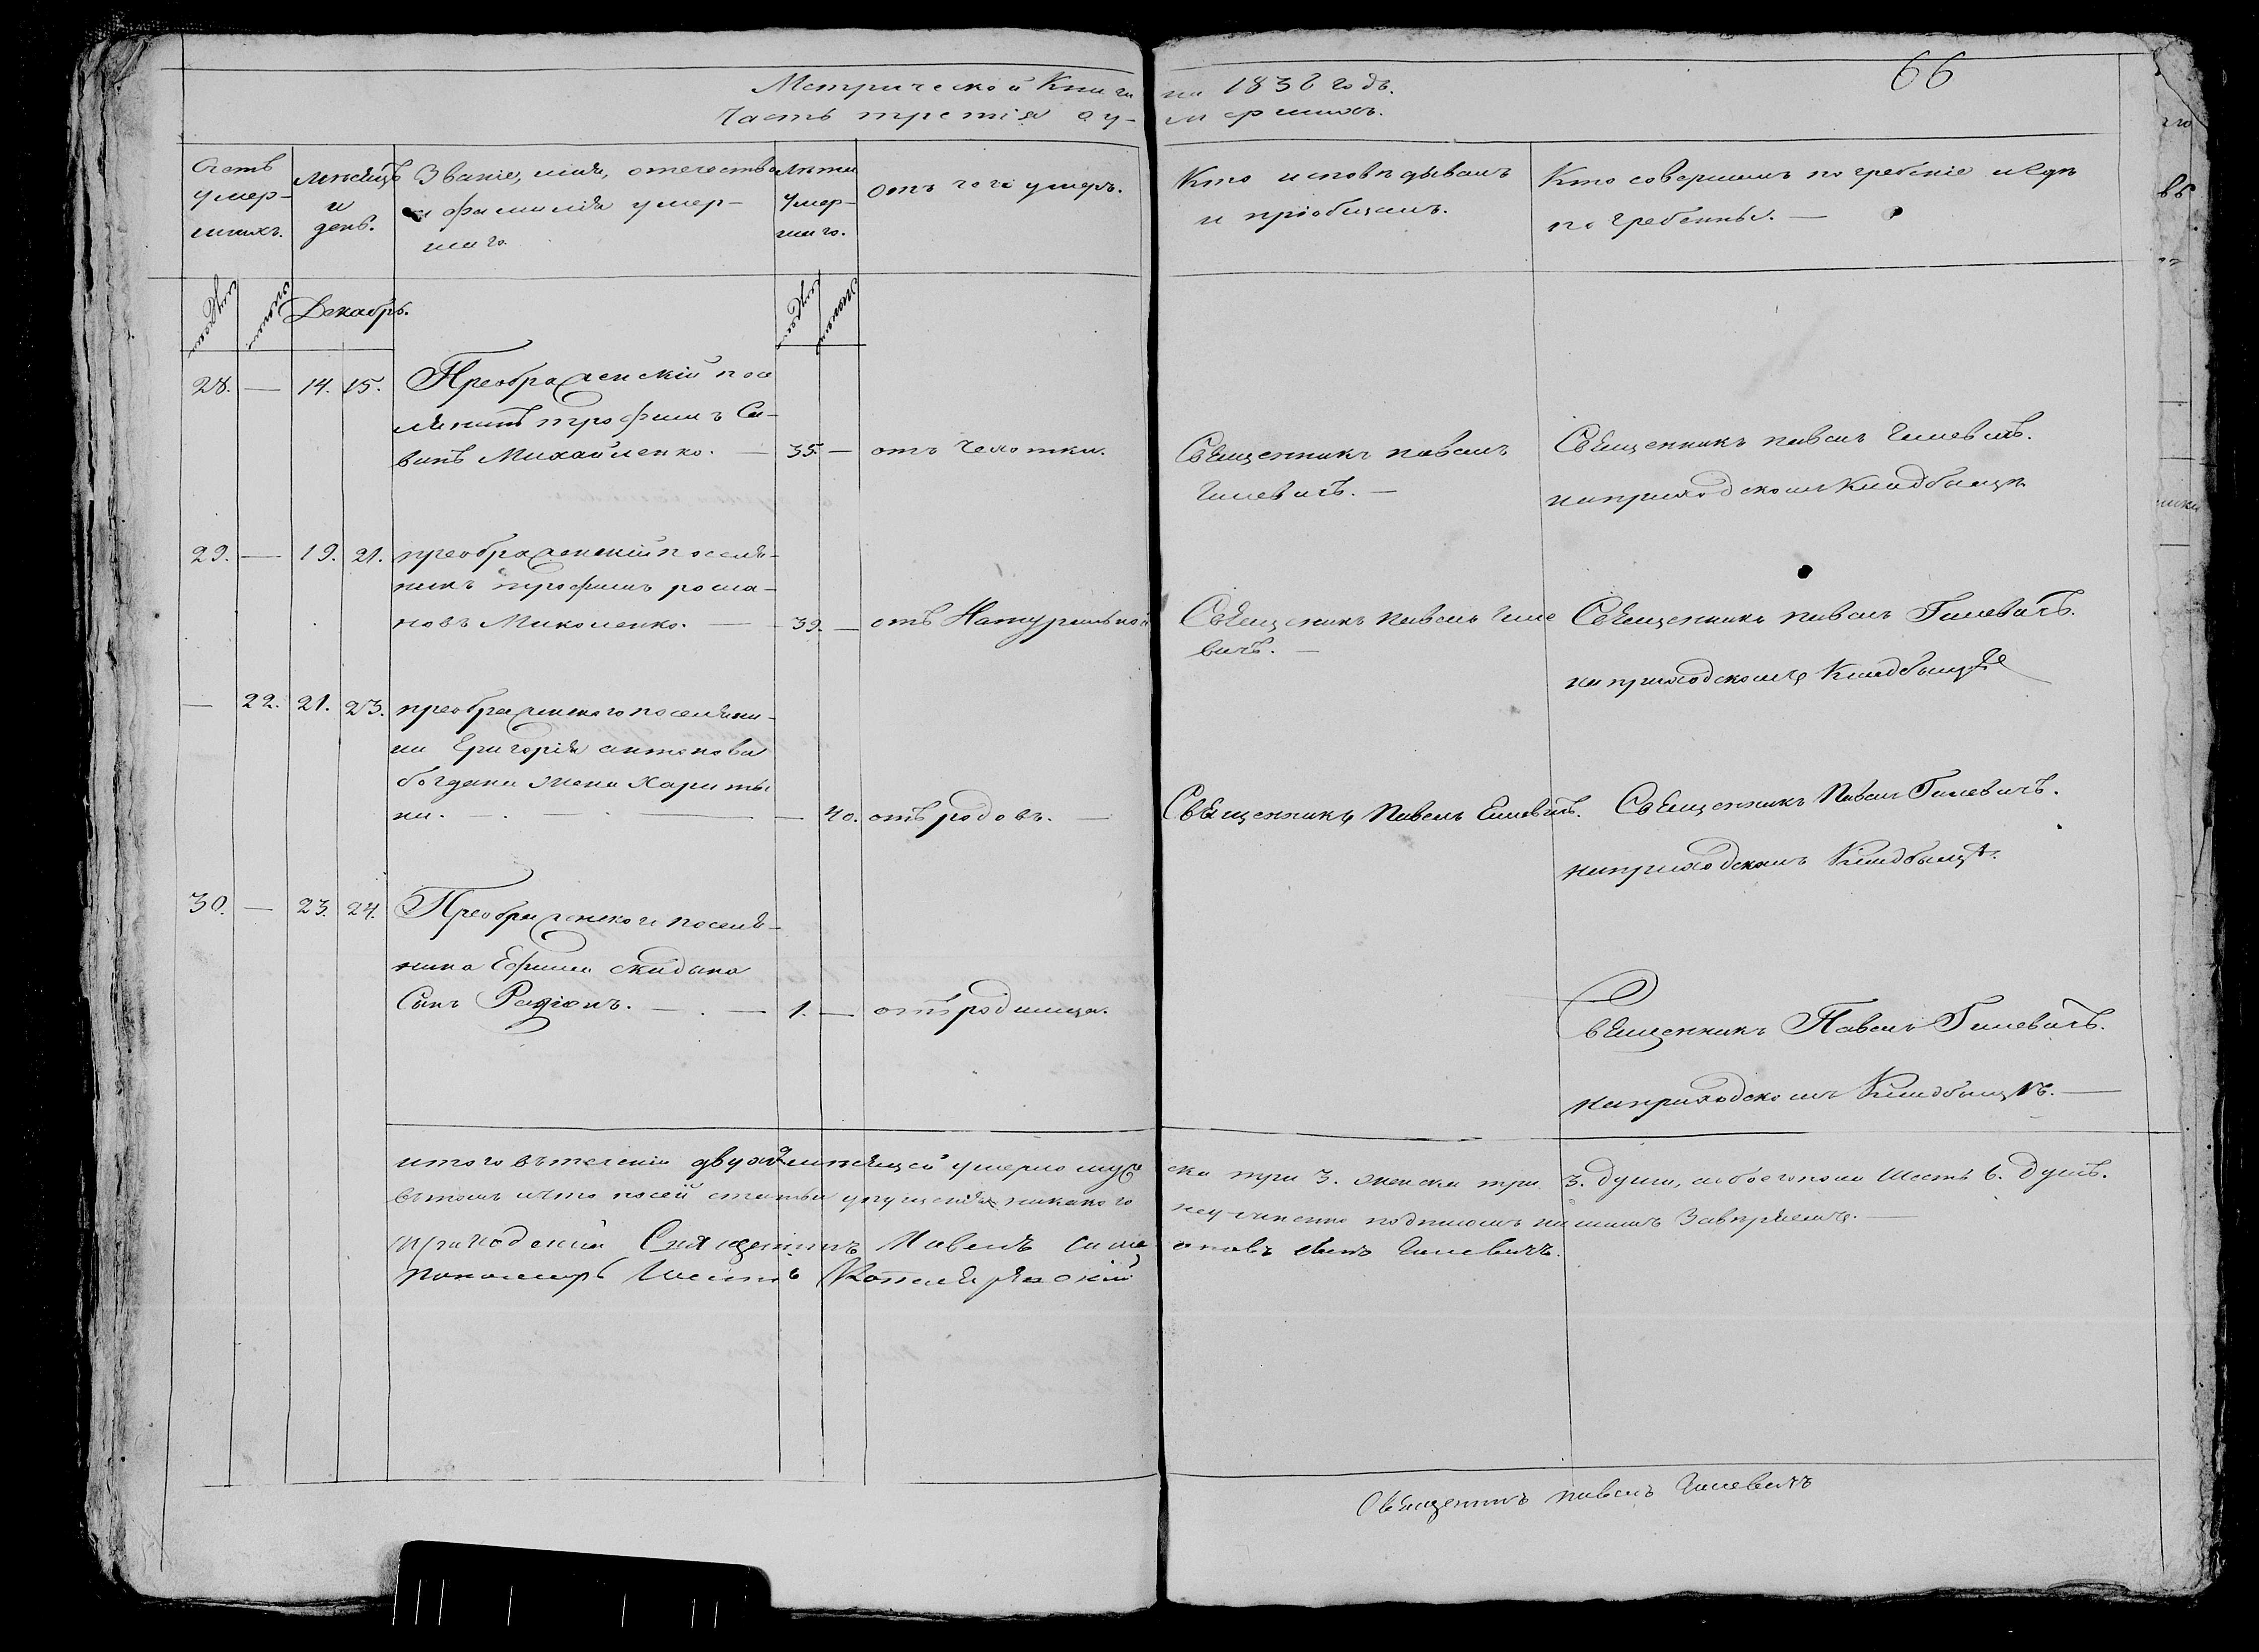 66
Метрической Книги на 1836 годъ.
Часть третія о умершихъ.
Счетъ умер-
шихъ.
Мѣсяцъ
и
день.
Званіе, имя, отечество
и фамилія умер-
шаго.
Лѣта
умер-
шаго.
Отъ чего умеръ.
Кто исповѣдывалъ
и пріобщалъ.
Кто совершилъ погребеніе и гдѣ
погребенны. —
Декабрь.
28. — 14. 15. Преображенскій посе
лянинъ Трофимъ Са-
винъ Михайленко. — 35. — отъ Чехотки.
Священникъ павелъ
Гилевичъ. —
Священникъ павелъ Гилевичъ.
на приходскомъ кладбищѣ
29. — 19. 21. преображенскій поселя-
нинъ трофимъ рома-
новъ Миколенко. — 39. — отъ Натуральной
Священникъ павелъ Гиле
вичъ. —
Священникъ павелъ Гилевичъ.
на приходскомъ Кладбище
— 22. 21. 23. преображенского поселяни-
на Григорія антонова
богдана жена Харити
на. — 40. отъ родовъ. —
Священникъ Павелъ Гилевичъ.
Священникъ Павелъ Гилевичъ.
на приходскомъ Кладбищѣ.
30. — 23. 24. Преображенского поселя-
нина Ефима скидана
Сынъ Радіонъ. — 1. — отъ родимца.
Священникъ Павелъ Гилевичъ.
на приходскомъ Кладбищѣ. —
итого въ теченіи двухъ мѣсяцей умерло мужеска три 3. женска три 3. души, а обоего пола Шесть 6. душъ.
въ томъ что по сей статьи упущенія никакого не учинено подписомъ нашимъ Завѣряемъ. —
Приходскій Священникъ Павелъ Гилевичъ.
пономарь
Священникъ павелъ Гилевичъ